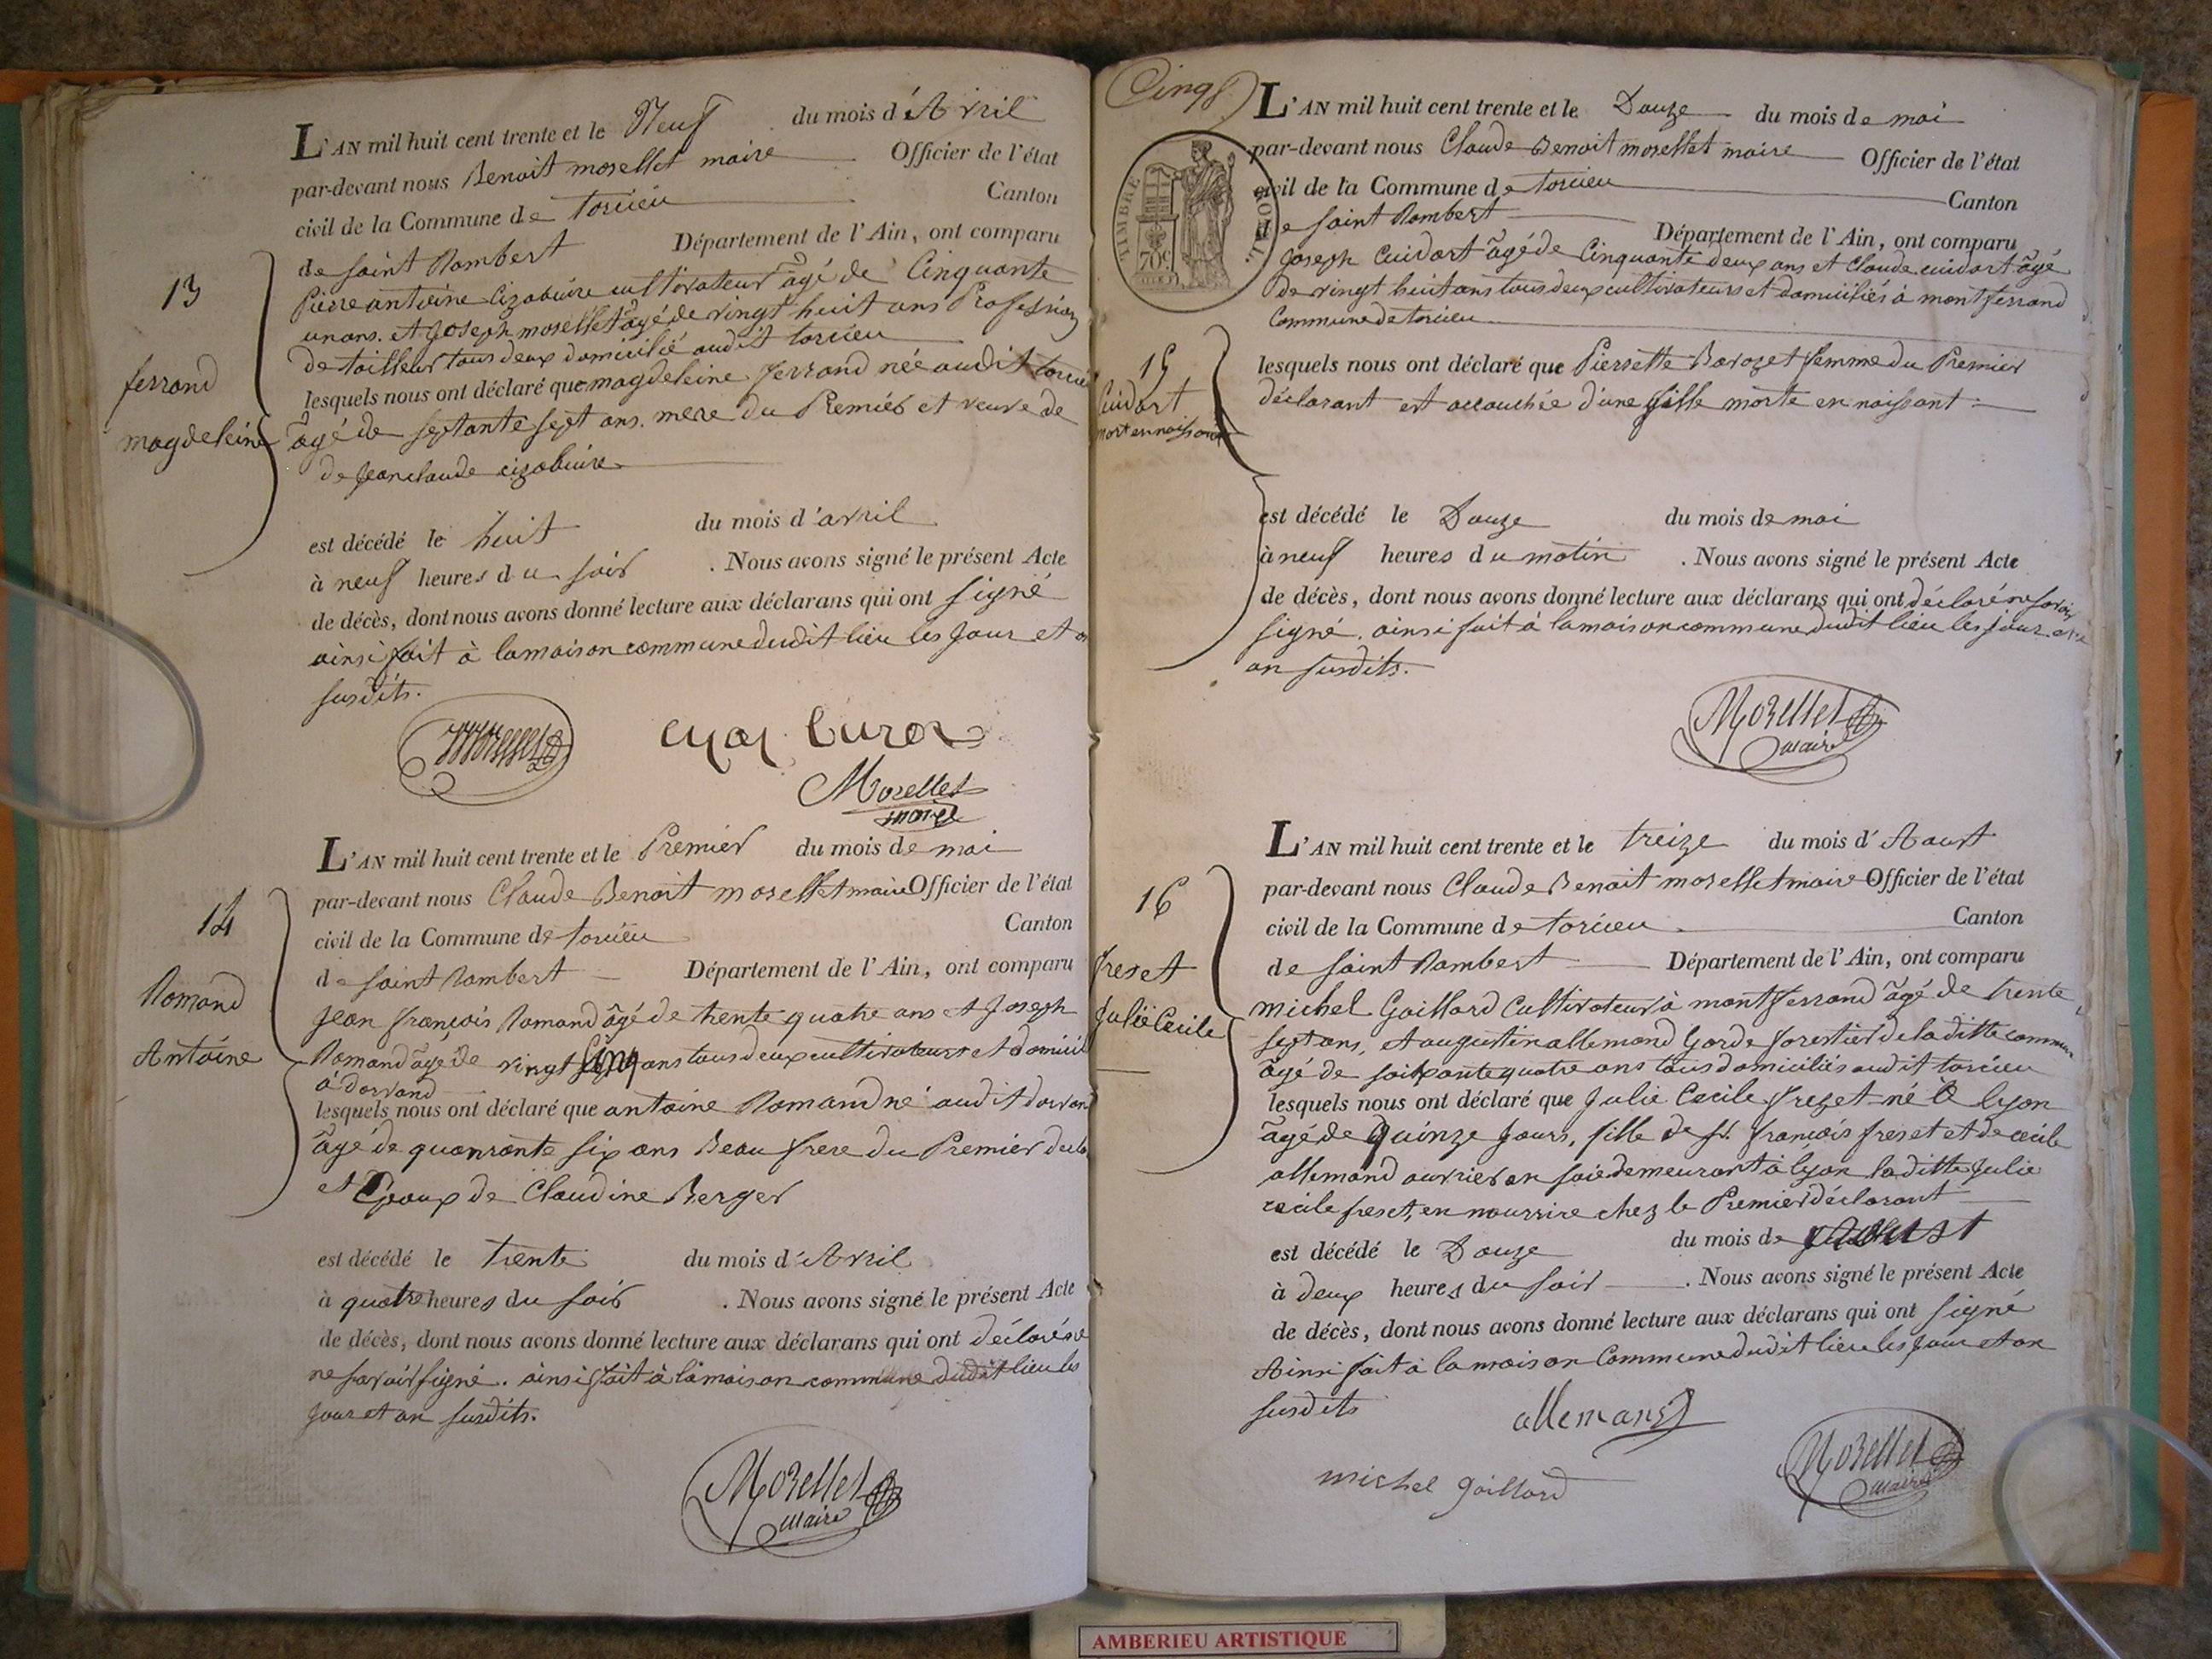 L'AN mil huit cent trente et le Neuf du mois d'Avril
par-devant nous Benoit morellet maire Officier de l'état
civil de la Commune de torcieu Canton
de saint Rambert Département de l'Ain, ont comparu
Pierre antoine cultivateur âgé de Cinquante
un ans. et Joseph morellet âgé de vingt huit ans Profession
de tailleur tous deux domicilié audit torcieu
lesquels nous ont déclaré que magdeleine ferrand née audit torcieu
âgé de septante sept ans. mere du Premier et veuve de
de Jean claude
est décédé le huit du mois d'avril
à neuf heures du soir . Nous avons signé le présent Acte
de décès, dont nous avons donné lecture aux déclarans qui ont signé
ainsi fait à la maison commune dudit lieu les Jour et an
susdits.
13
ferrand
magdeleine
Morellet
maire
L'AN mil huit cent trente et le Premier du mois de mai
par-devant nous Claude Benoit morellet maire Officier de l'état
civil de la Commune de torcieu Canton
de saint Rambert Département de l'Ain, ont comparu
Jean françois Romand âgé de trente quatre ans et Joseph
Romand âgé de vingt Cinq ans tous deux cultivateurs et domicil
à dorvand
lesquels nous ont déclaré que antoine Romand né audit dorvand
âgé de quanrante six ans Beau frere du Premier
et Epoux de Claudine Berger
est décédé le trente du mois d'Avril
à quatre heures du soir . Nous avons signé le présent Acte
de décès, dont nous avons donné lecture aux déclarans qui ont déclaré
ne savoir signé. ainsi fait à la maison commune dudit lieu les
Jour et an susdits.
14
Romand
Antoine
Morellet
maire
Cinq
TIMBRE ROYAL
70c
L'AN mil huit cent trente et le Douze du mois de mai
par-devant nous Claude Benoit morellet maire Officier de l'état
civil de la Commune de torcieu Canton
de saint Rambert Département de l'Ain, ont comparu
Joseph Cuidart âgé de Cinquante deux ans et Claude cuidart âgé
de vingt huit ans tous deux cultivateurs et domiciliés à montferrand
Commune de torcieu
lesquels nous ont déclaré que Pierrette Barozet femme du Premier
déclarant est accouchée d'une fille morte en naissant
est décédé le Douze du mois de mai
à neuf heures du matin . Nous avons signé le présent Acte
de décès, dont nous avons donné lecture aux déclarans qui ont déclaré ne savoir
signé. ainsi fait à la maison commune dudit lieu les jour et
an susdits.
15
Cuidart
mort en naissant
Morellet
maire
L'AN mil huit cent trente et le treize du mois d'Aoust
par-devant nous Claude Benoit morellet maire Officier de l'état
civil de la Commune de torcieu Canton
de saint Rambert Département de l'Ain, ont comparu
michel Gaillard Cultivateur à montferrand âgé de trente
sept ans, et augustin allemand Garde forestier de la ditte commune
âgé de soixante quatre ans tous domiciliés audit torcieu
lesquels nous ont déclaré que Julie Cecile frezet né à lyon
âgé de quinze Jours, fille de françois freset et de cecile
allemand ouvrier en soie demeurant à lyon la ditte Julie
cecile freset, en nourrire chez le Premier déclarant
est décédé le Douze du mois de Aoust
à deux heures du soir . Nous avons signé le présent Acte
de décès, dont nous avons donné lecture aux déclarans qui ont signé
Ainsi fait à la maison Commune dudit lieu les Jour et an
susdits
16
freset
Julie Cecile
allemand
michel gaillard
Morellet
maire
AMBERIEU ARTISTIQUE